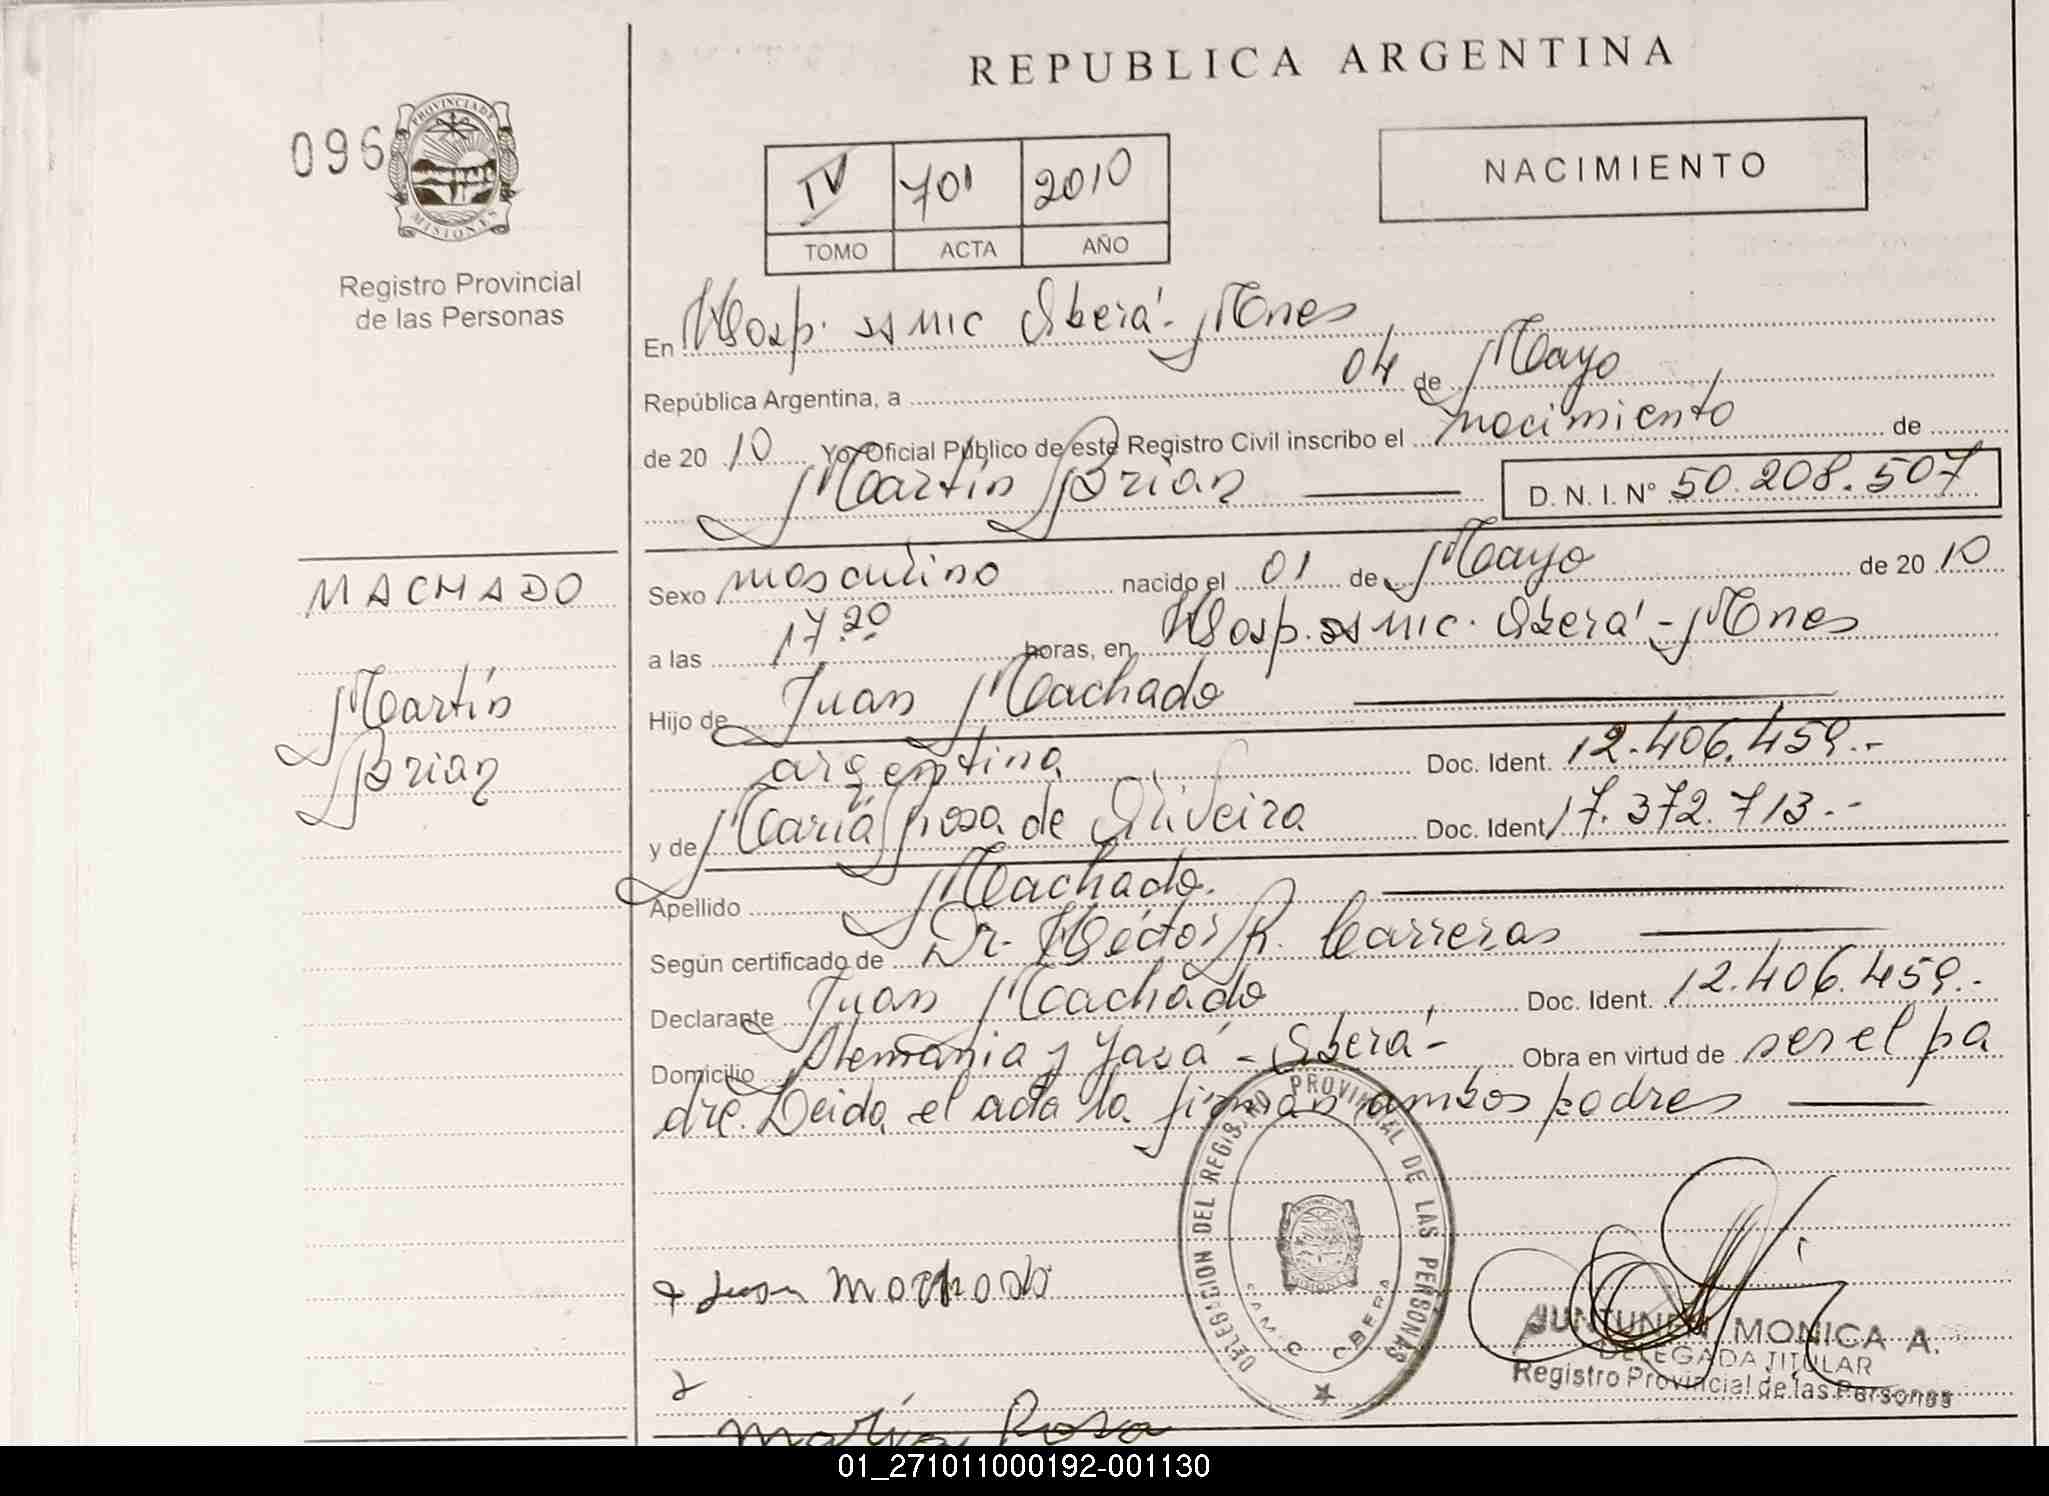 REPUBLICA ARGENTINA
096
PROVINCIA DE
MISIONES
Registro Provincial
de las Personas
IV 701 2010
TOMO ACTA AÑO
NACIMIENTO
En Hosp. SAMIC Oberá - Mnes
República Argentina, a 04 de Mayo
de 20 10 Yo, Oficial Público de este Registro Civil inscribo el nacimiento de
Martín Brian D. N. I. N° 50.208.507
MACHADO
Martín
Brian
Sexo masculino nacido el 01 de Mayo de 20 10
a las 17.20 horas, en Hosp. SAMIC. Oberá - Mnes
Hijo de Juan Machado
argentina Doc. Ident. 12.406.459.-
y de María Rosa de Oliveira Doc. Ident 17.372.713.-
Apellido Machado.
Según certificado de Dr. Héctor R. Carreras
Declarante Juan Machado Doc. Ident. 12.406.459.-
Domicilio Alemania y Yazá - Oberá - Obra en virtud de ser el pa
dre. Leida el acta la firman ambos padres
DELEGACION DEL REGISTRO PROVINCIAL DE LAS PERSONAS
SAMIC OBERA
Juan Machado
JUNTUNEN MONICA A.
DELEGADA TITULAR
Registro Provincial de las Personas
María Rosa
01_271011000192-001130